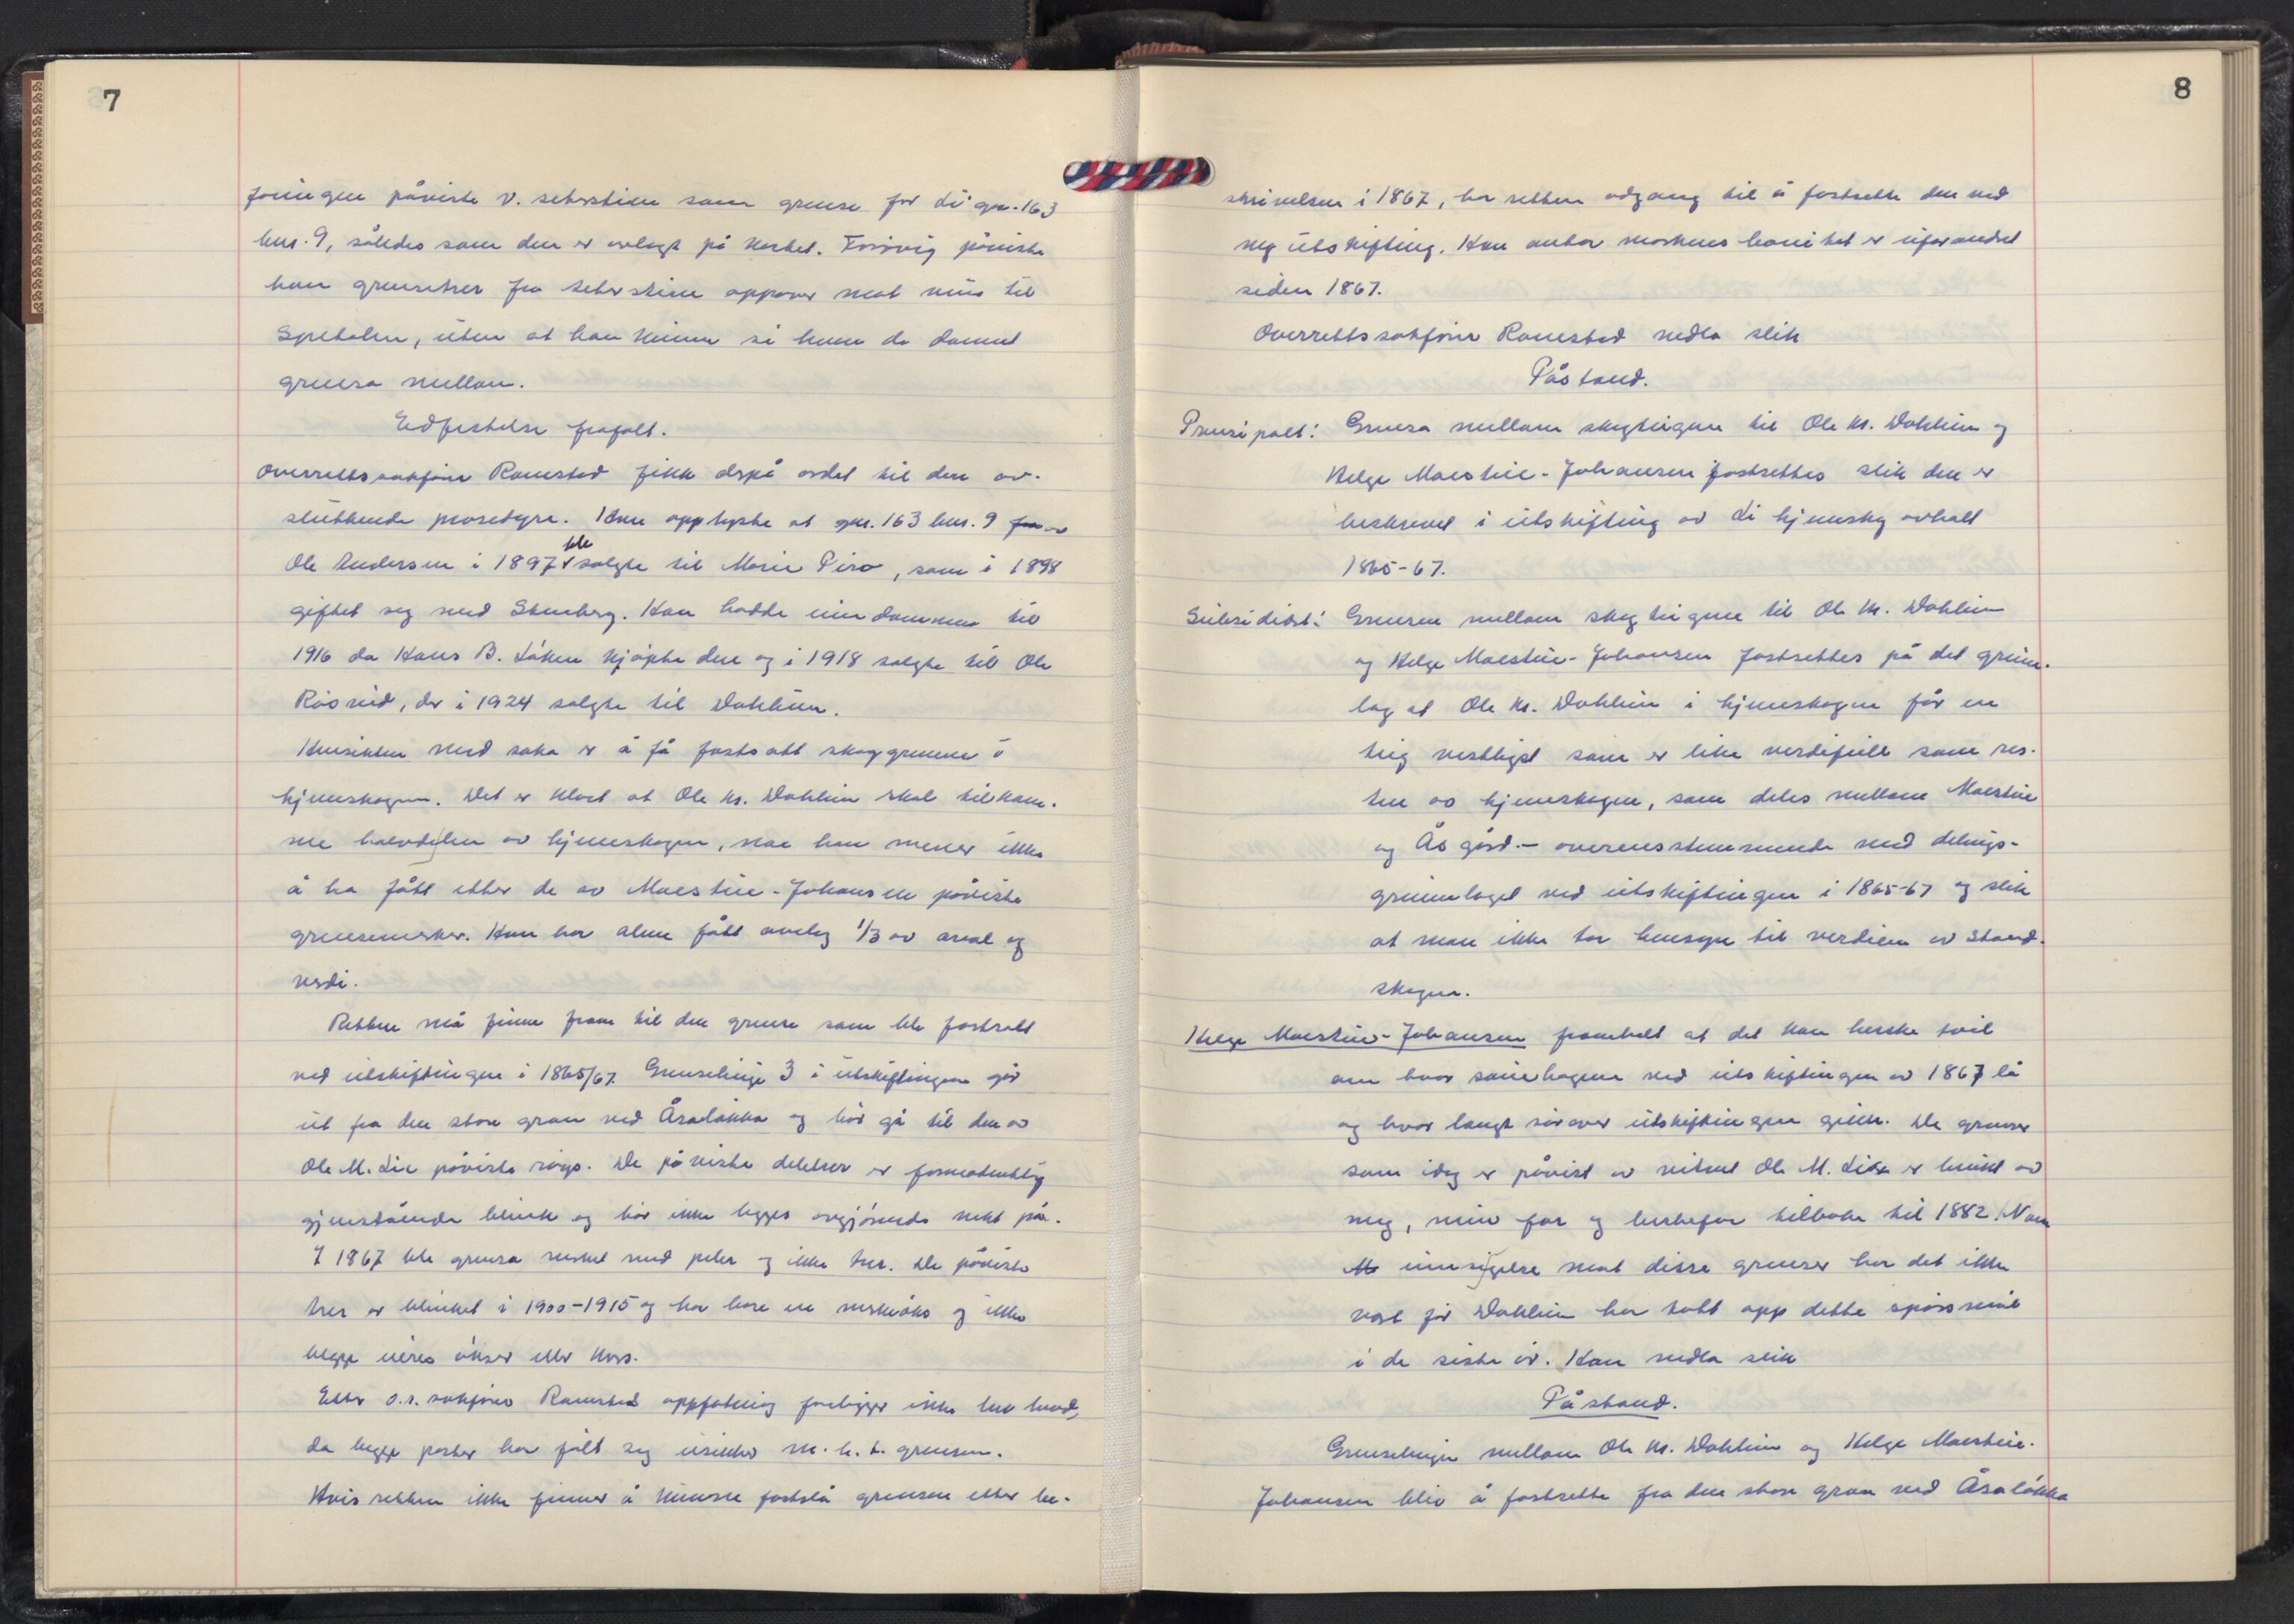 7
foringen påviste v. seterstien som grense for Li gnr. 163
bnr. 9, således som den er avlagt på kartet. Forøvrig påviste
han grensetrær fra seterstien oppover mot nuv. til
Spetalen, uten at han kunne si hvem de dannet
grensa mellom.
Edfestelse frafalt.
Overrettssakfører Ramstad fikk derpå ordet til den av-
sluttende prosedyre. Han opplyste at gnr. 163 bnr. 9 av
Ole Andersen i 1897 ble solgte til Marie Piro, som i 1898
giftet seg med Stenberg. Han hadde eiendommen til
1916 da Hans B. Løken kjøpte den og i 1918 solgte til Ole
Røsnid, der i 1924 solgte til Dahlin.
Hensikten med saka er å få fastsatt skoggrensene i
hjemskogen. Det er klart at Ole Kr. Dahlin skal tilkom-
me halvdelen av hjemskogen, noe han mener ikke
å ha fått etter de av Maestue-Johansen påviste
grensemerker. Han har alene fått omlag 1/3 av areal og
verdi.
Retten må finne fram til den grense som ble fastsatt
ved utskiftingen i 1865/67. Grenselinje 3 i utskiftingen går
ut fra den store gran ved Åsaløkka og bør gå til den av
Ole M. Lie påviste røys. De påviste delelser er formodentlig
gjenstående blink og bør ikke legges avgjørende vekt på.
I 1867 ble grensa merket med peler og ikke trær. De påviste
trær er blinket i 1900-1915 og har bare en merkeøks og ikke
begge eieres økser eller kors.
Etter o.r. sakfører Ramstad oppfatning foreligger ikke hevd,
da begge parter har følt seg usikker m.h.t. grensen.
Hvis retten ikke finner å kunne fastslå grensene etter be-
8
skrivelsen i 1867, har retten adgang til å fastsette den ved
ny utskifting. Han antar markens bonitet er uforandret
siden 1867.
Overrettssakfører Ramstad nedla slik
Påstand.
Prinsipalt: Grensa mellom skogteigene til Ole Kr. Dahlin og
Helge Maestue-Johansen fastsettes slik den er
beskrevet i utskifting av Li hjemskog avholdt
1865-67.
Subsidiært: Grensen mellom skogteigene til Ole Kr. Dahlin
og Helge Maestue-Johansen fastsettes på det grunn-
lag at Ole Kr. Dahlin i hjemskogen får en
teig vestligst som er like verdifull som res-
ten av hjemskogen, som deles mellom Maestue
og Ås gård - overensstemmende med delings-
grunnlaget ved utskiftingen i 1865-67 og slik
at man ikke tar hensyn til verdien av stand-
skogen.
Helge Maestue-Johansen framholdt at det kan herske tvil
om hvor sauehagene ved utskiftingen av 1867 lå
og hvor langt sørover utskiftingen gikk. De grenser
som idag er påvist av vitnet Ole M. Lie er brukt av
meg, min far og bestefar tilbake til 1882. Noen
innsigelse mot disse grenser har det ikke
vært før Dahlin har tatt opp dette spørsmål
i de siste år. Han nedla slik
Påstand.
Grenselinjen mellom Ole Kr. Dahlin og Helge Maestue-
Johansen bliv å fastsette fra den store gran ved Åsaløkka